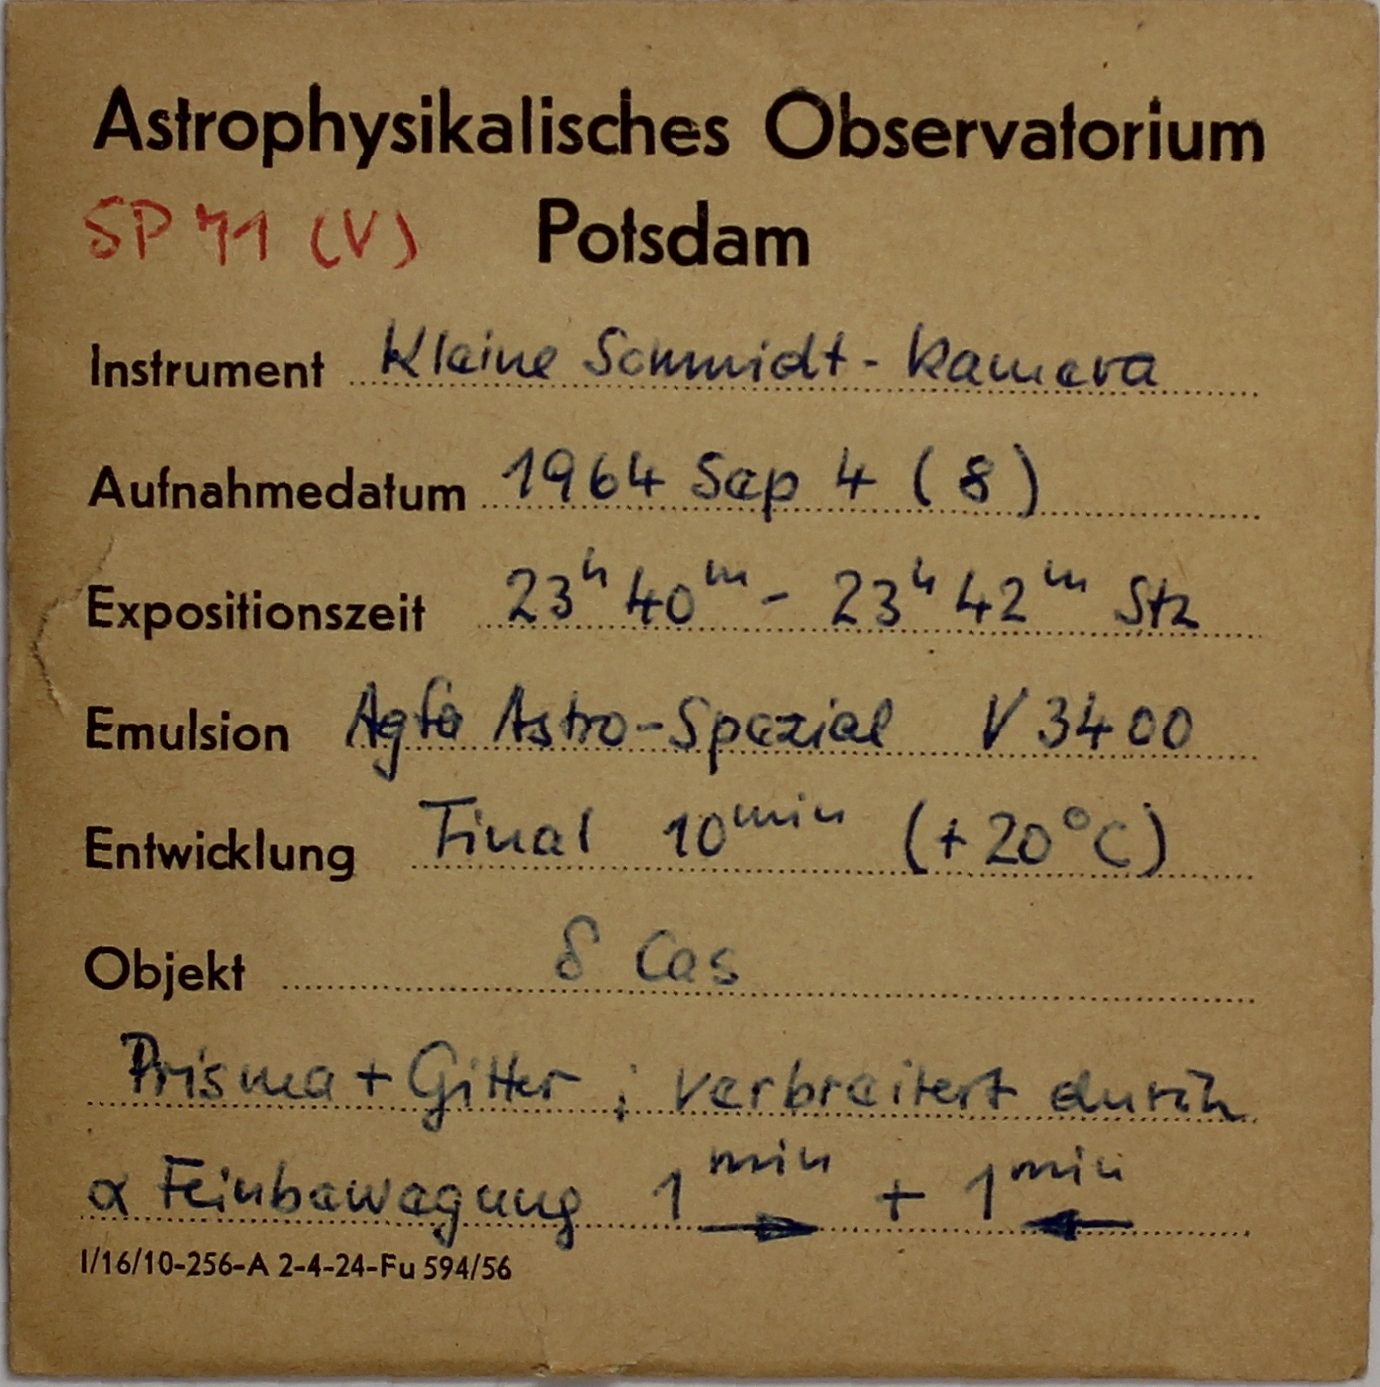 Astrophysikalisches Observatorium
SP 71 (V) Potsdam
Instrument Kleine Schmidt-Kamera
Aufnahmedatum 1964 Sep 4 (8)
Expositionszeit 23h 40m - 23h 42m Stz
Emulsion Agfa Astro-Spezial V 3400
Entwicklung Final 10min (+20°C)
Objekt δ Cas
Prisma + Gitter ; verbreitert durch
α Feinbewegung 1min → + 1min ←
I/16/10-256-A 2-4-24-Fu 594/56